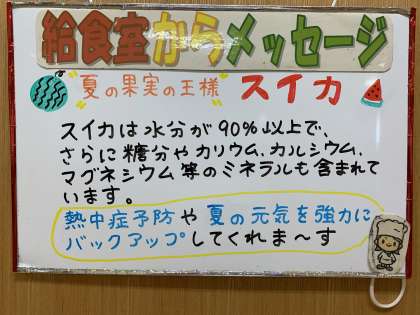 給食室からメッセージ
"夏の果実の王様" スイカ
スイカは水分が90%以上で、
さらに糖分やカリウム、カルシウム、
マグネシウム等のミネラルも含まれて
います。
熱中症予防や夏の元気を強力に
バックアップしてくれま〜す